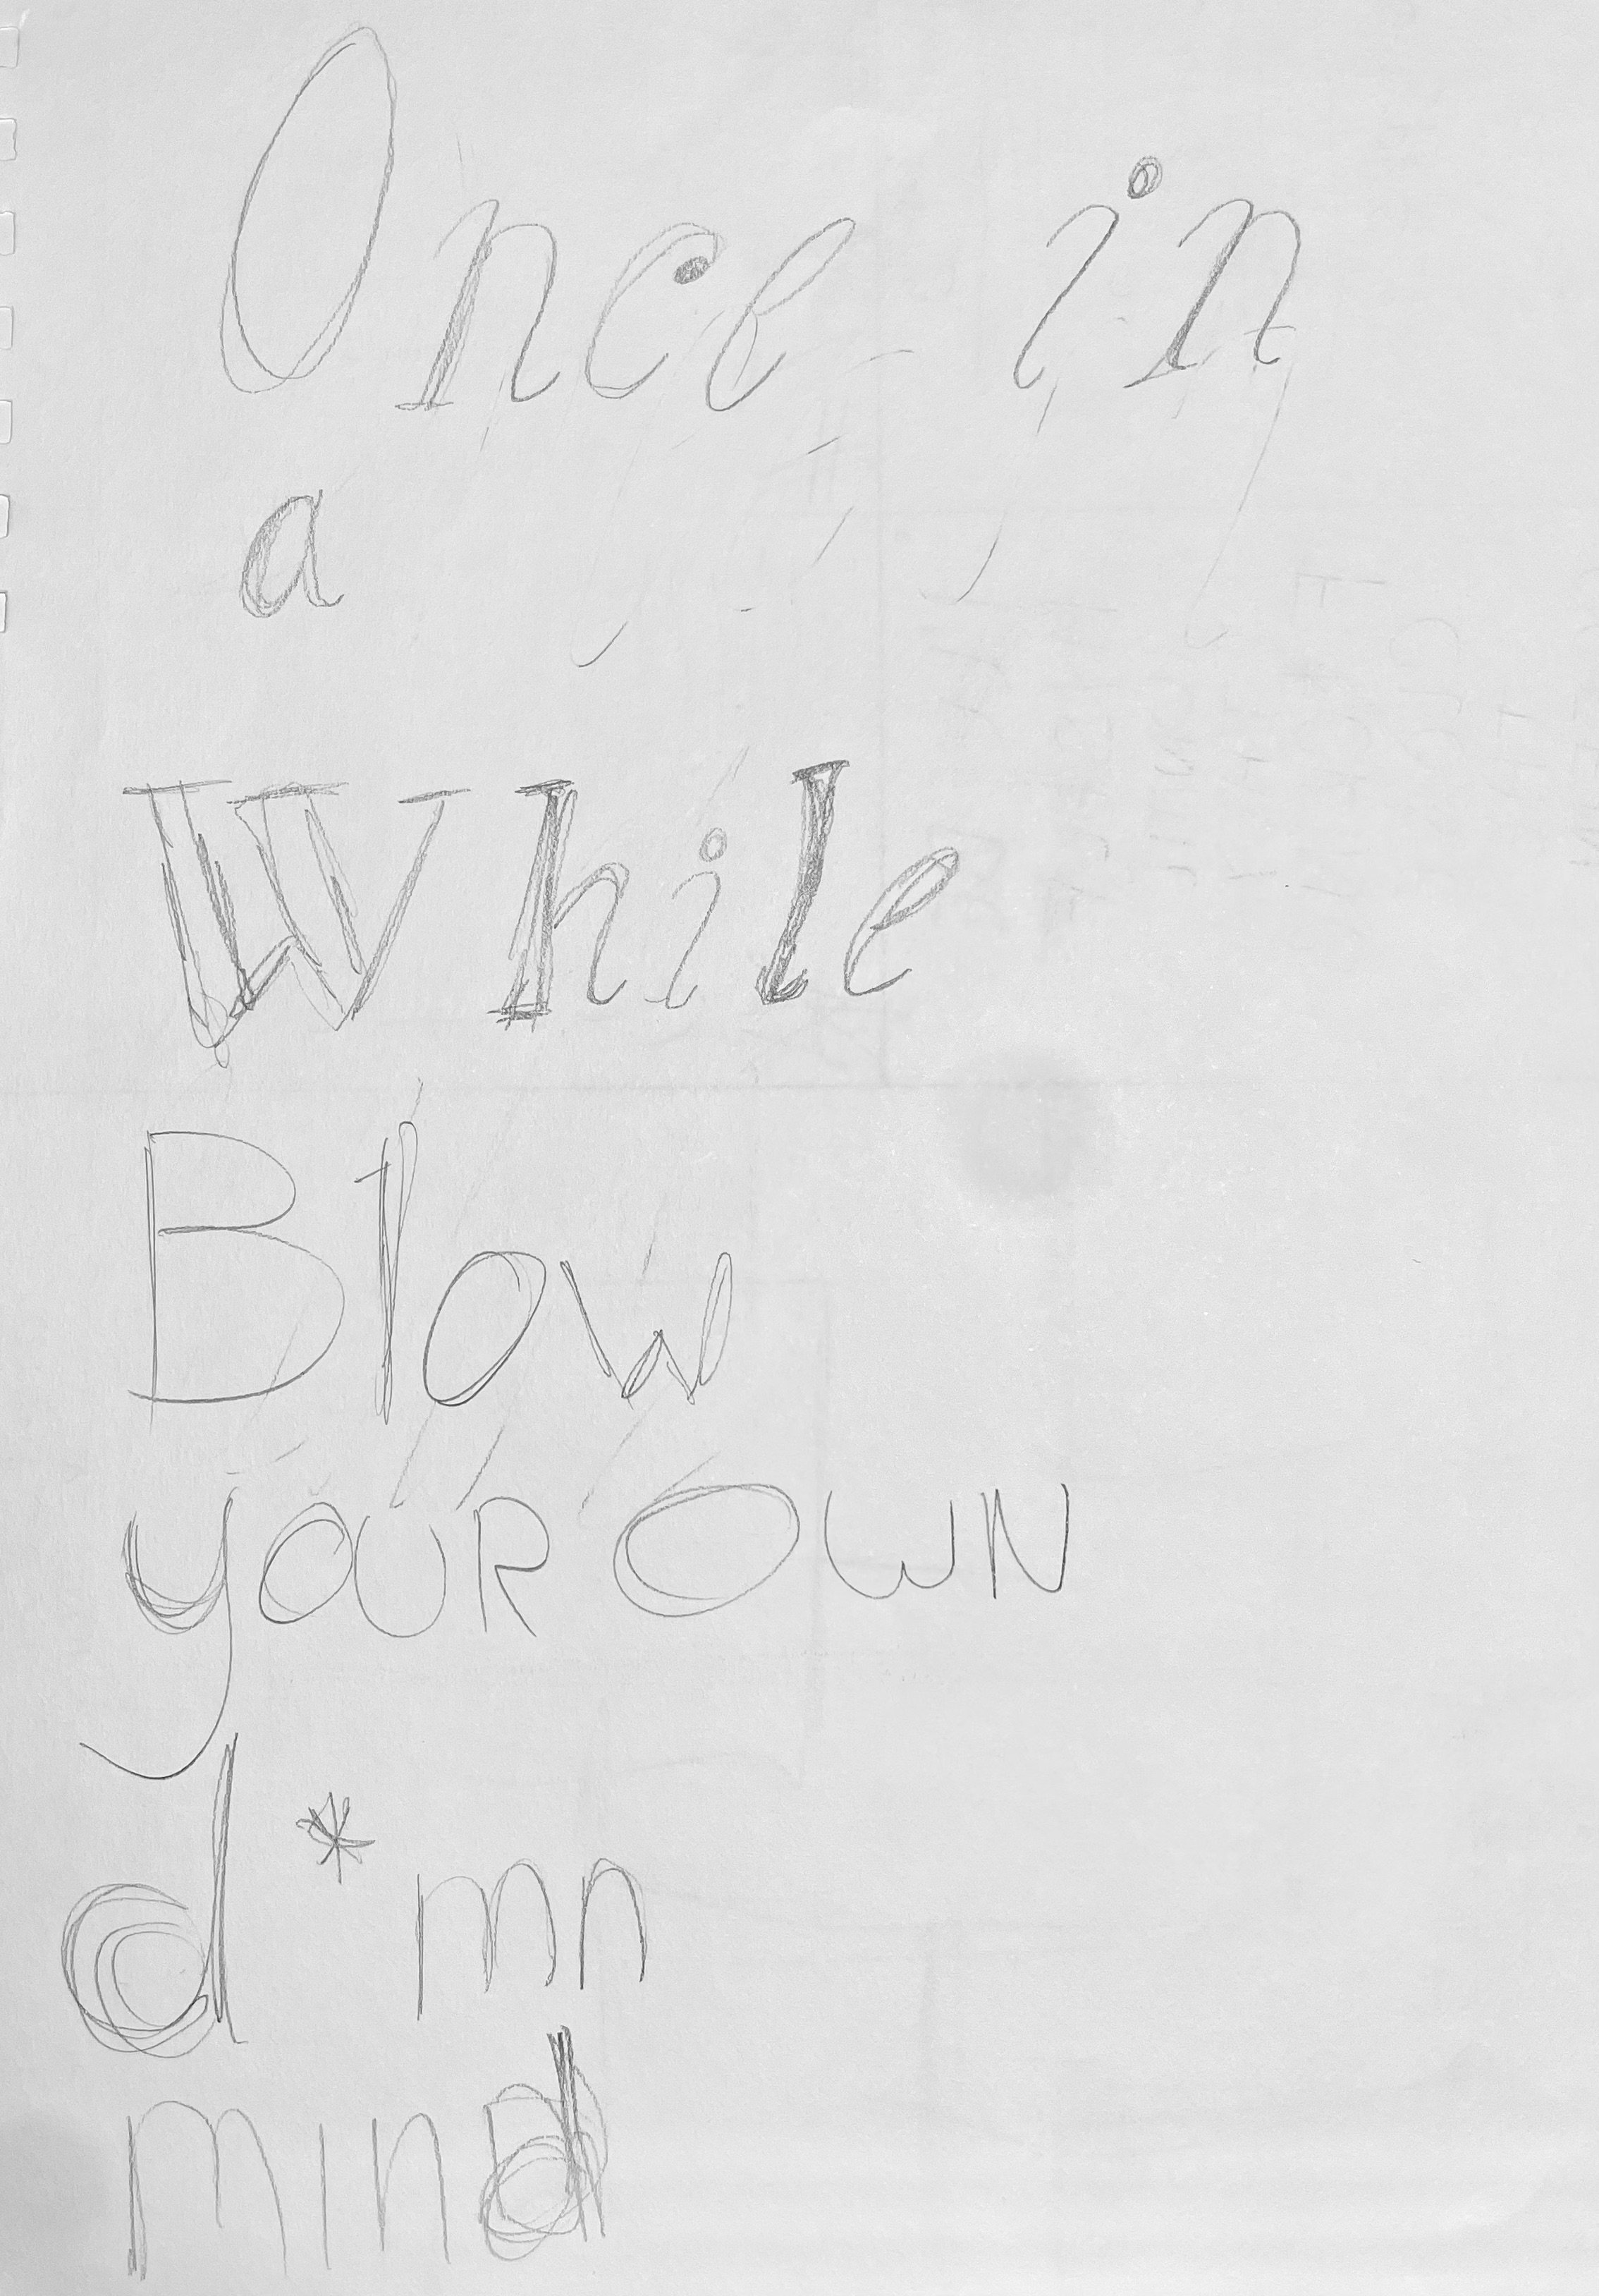 Once in
a
While
Blow
yOUR OWN
d*mn
mind